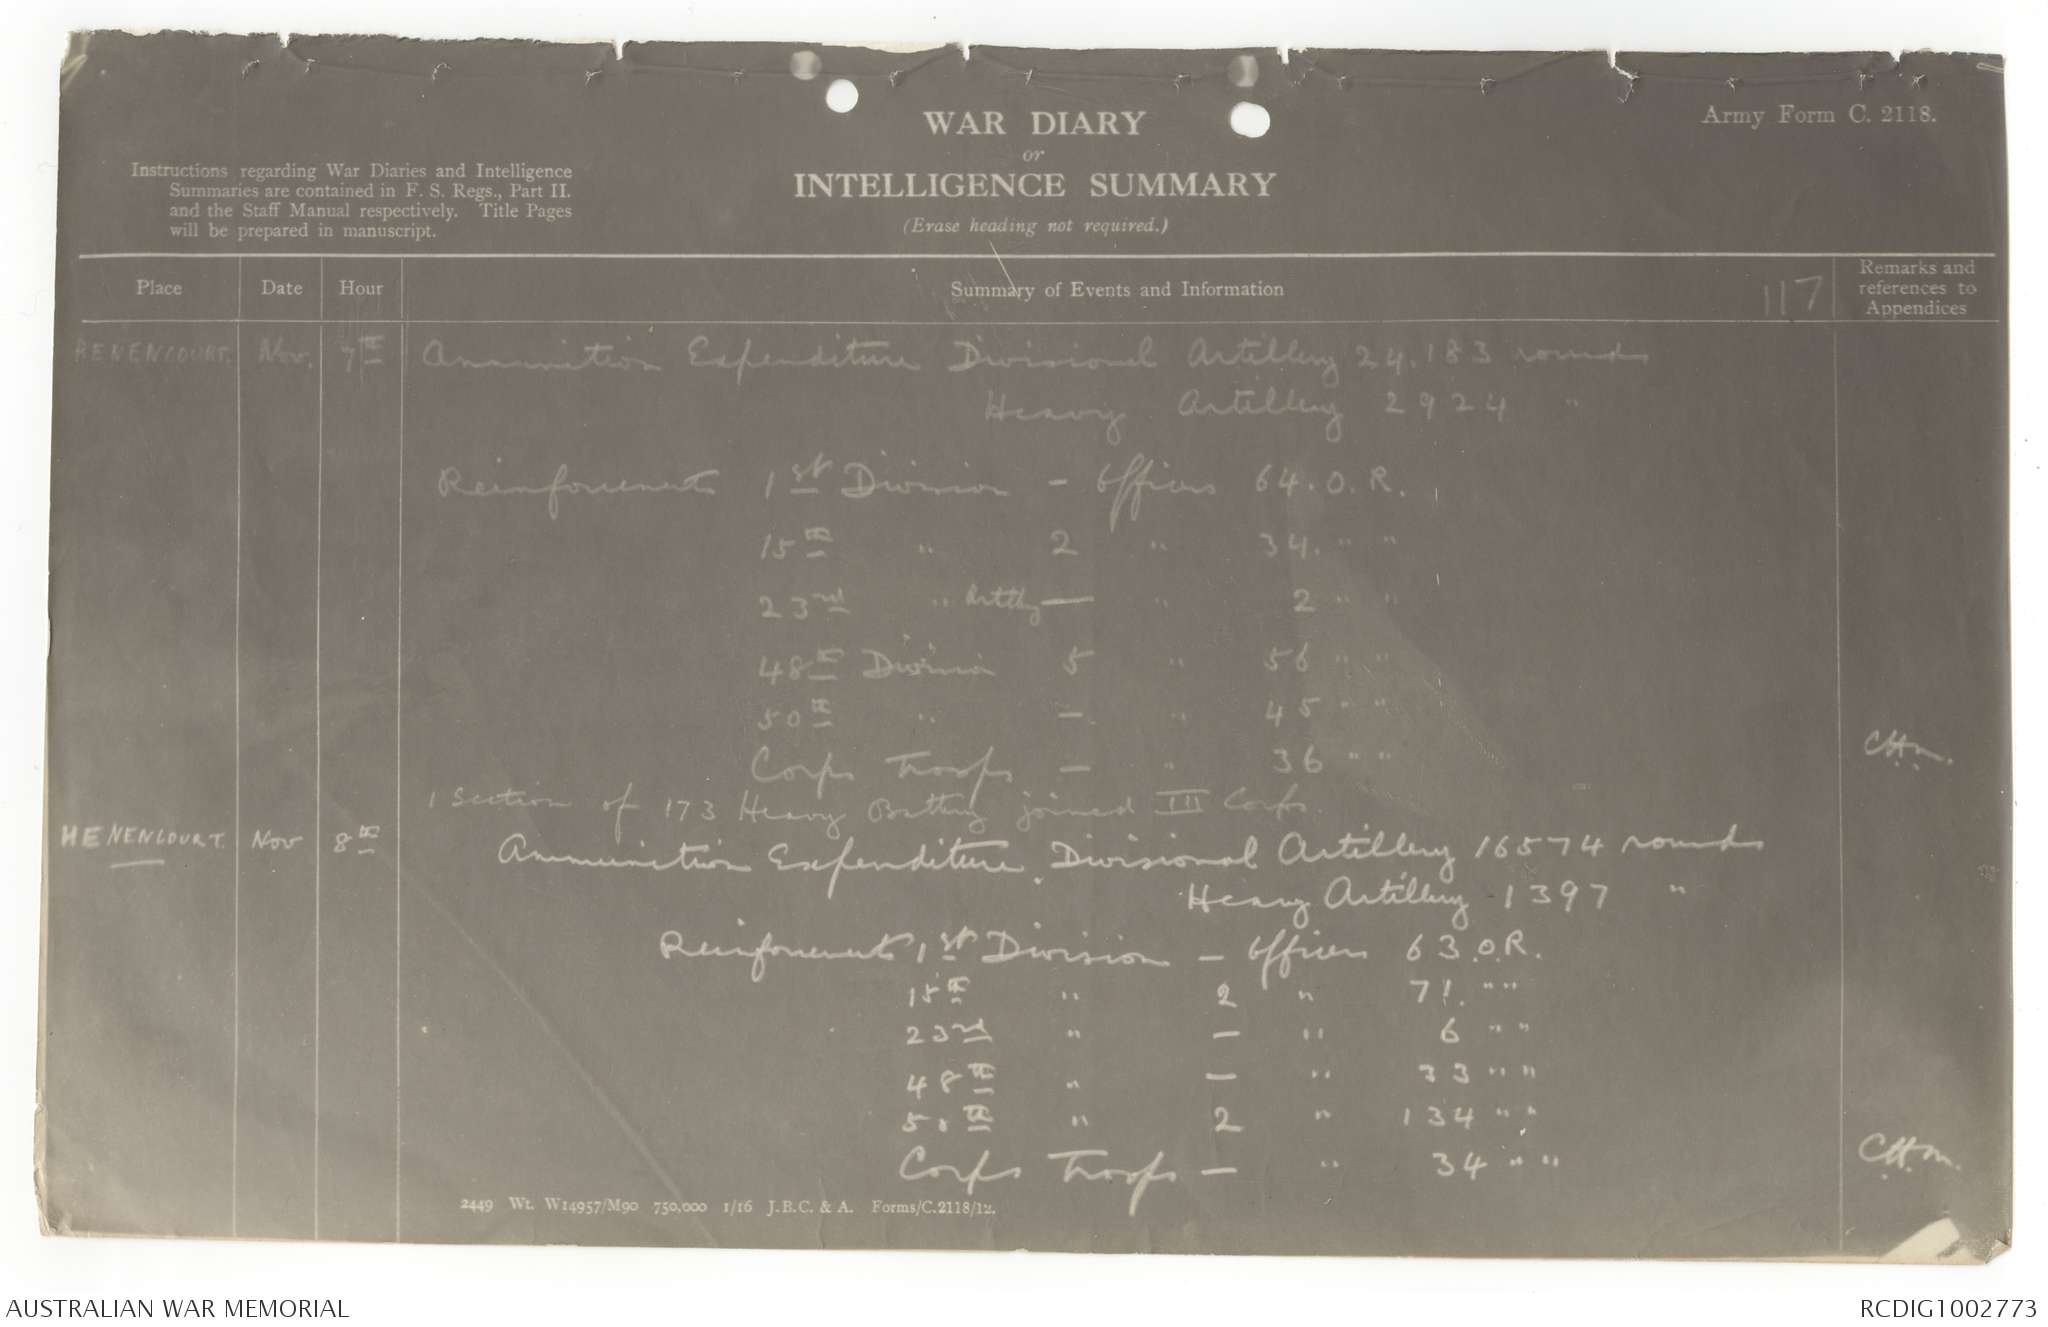 Army Form C. 2118.
WAR DIARY
or
INTELLIGENCE SUMMARY
(Erase heading not required.)
Instructions regarding War Diaries and Intelligence
Summaries are contained in F. S. Regs., Part II.
and the Staff Manual respectively. Title Pages
will be prepared in manuscript.
Place Date Hour Summary of Events and Information 117 Remarks and references to Appendices
HENENCOURT. Nov. 7th Ammunition Expenditure Divisional Artillery 24.183 rounds
Heavy Artillery 2924 "
Reinforcements 1st Division - Officers 64. O. R.
15th " 2 " 34. " "
23rd " Artillery — " 2 " "
48th Division 5 " 56 " "
50th " — " 45 " "
Corps Troops — " 36 " "
C.H.M.
1 Section of 173 Heavy Battery joined III Corps.
HENENCOURT. Nov 8th Ammunition Expenditure. Divisional Artillery 16574 rounds
Heavy Artillery 1397 "
Reinforcements 1st Division — Officers 63.O.R.
15th " 2 " 71. " "
23rd " — " 6 " "
48th " — " 33 " "
50th " 2 " 134 " "
Corps Troops — " 34 " "
C.H.M.
2449 Wt. W14957/M90 750,000 1/16 J.B.C. & A. Forms/C.2118/12.
AUSTRALIAN WAR MEMORIAL
RCDIG1002773